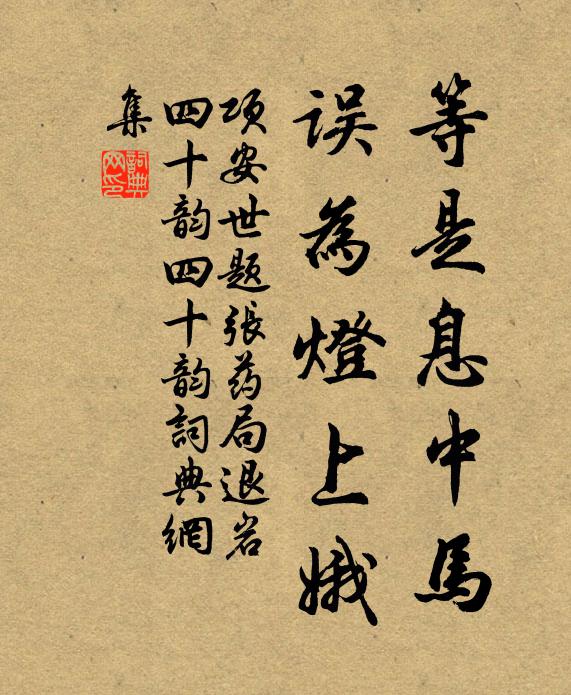 等是息中馬
误為燈上娥
项安世题張药局退岩
四十韵四十韵詞典網
集
詞典網印